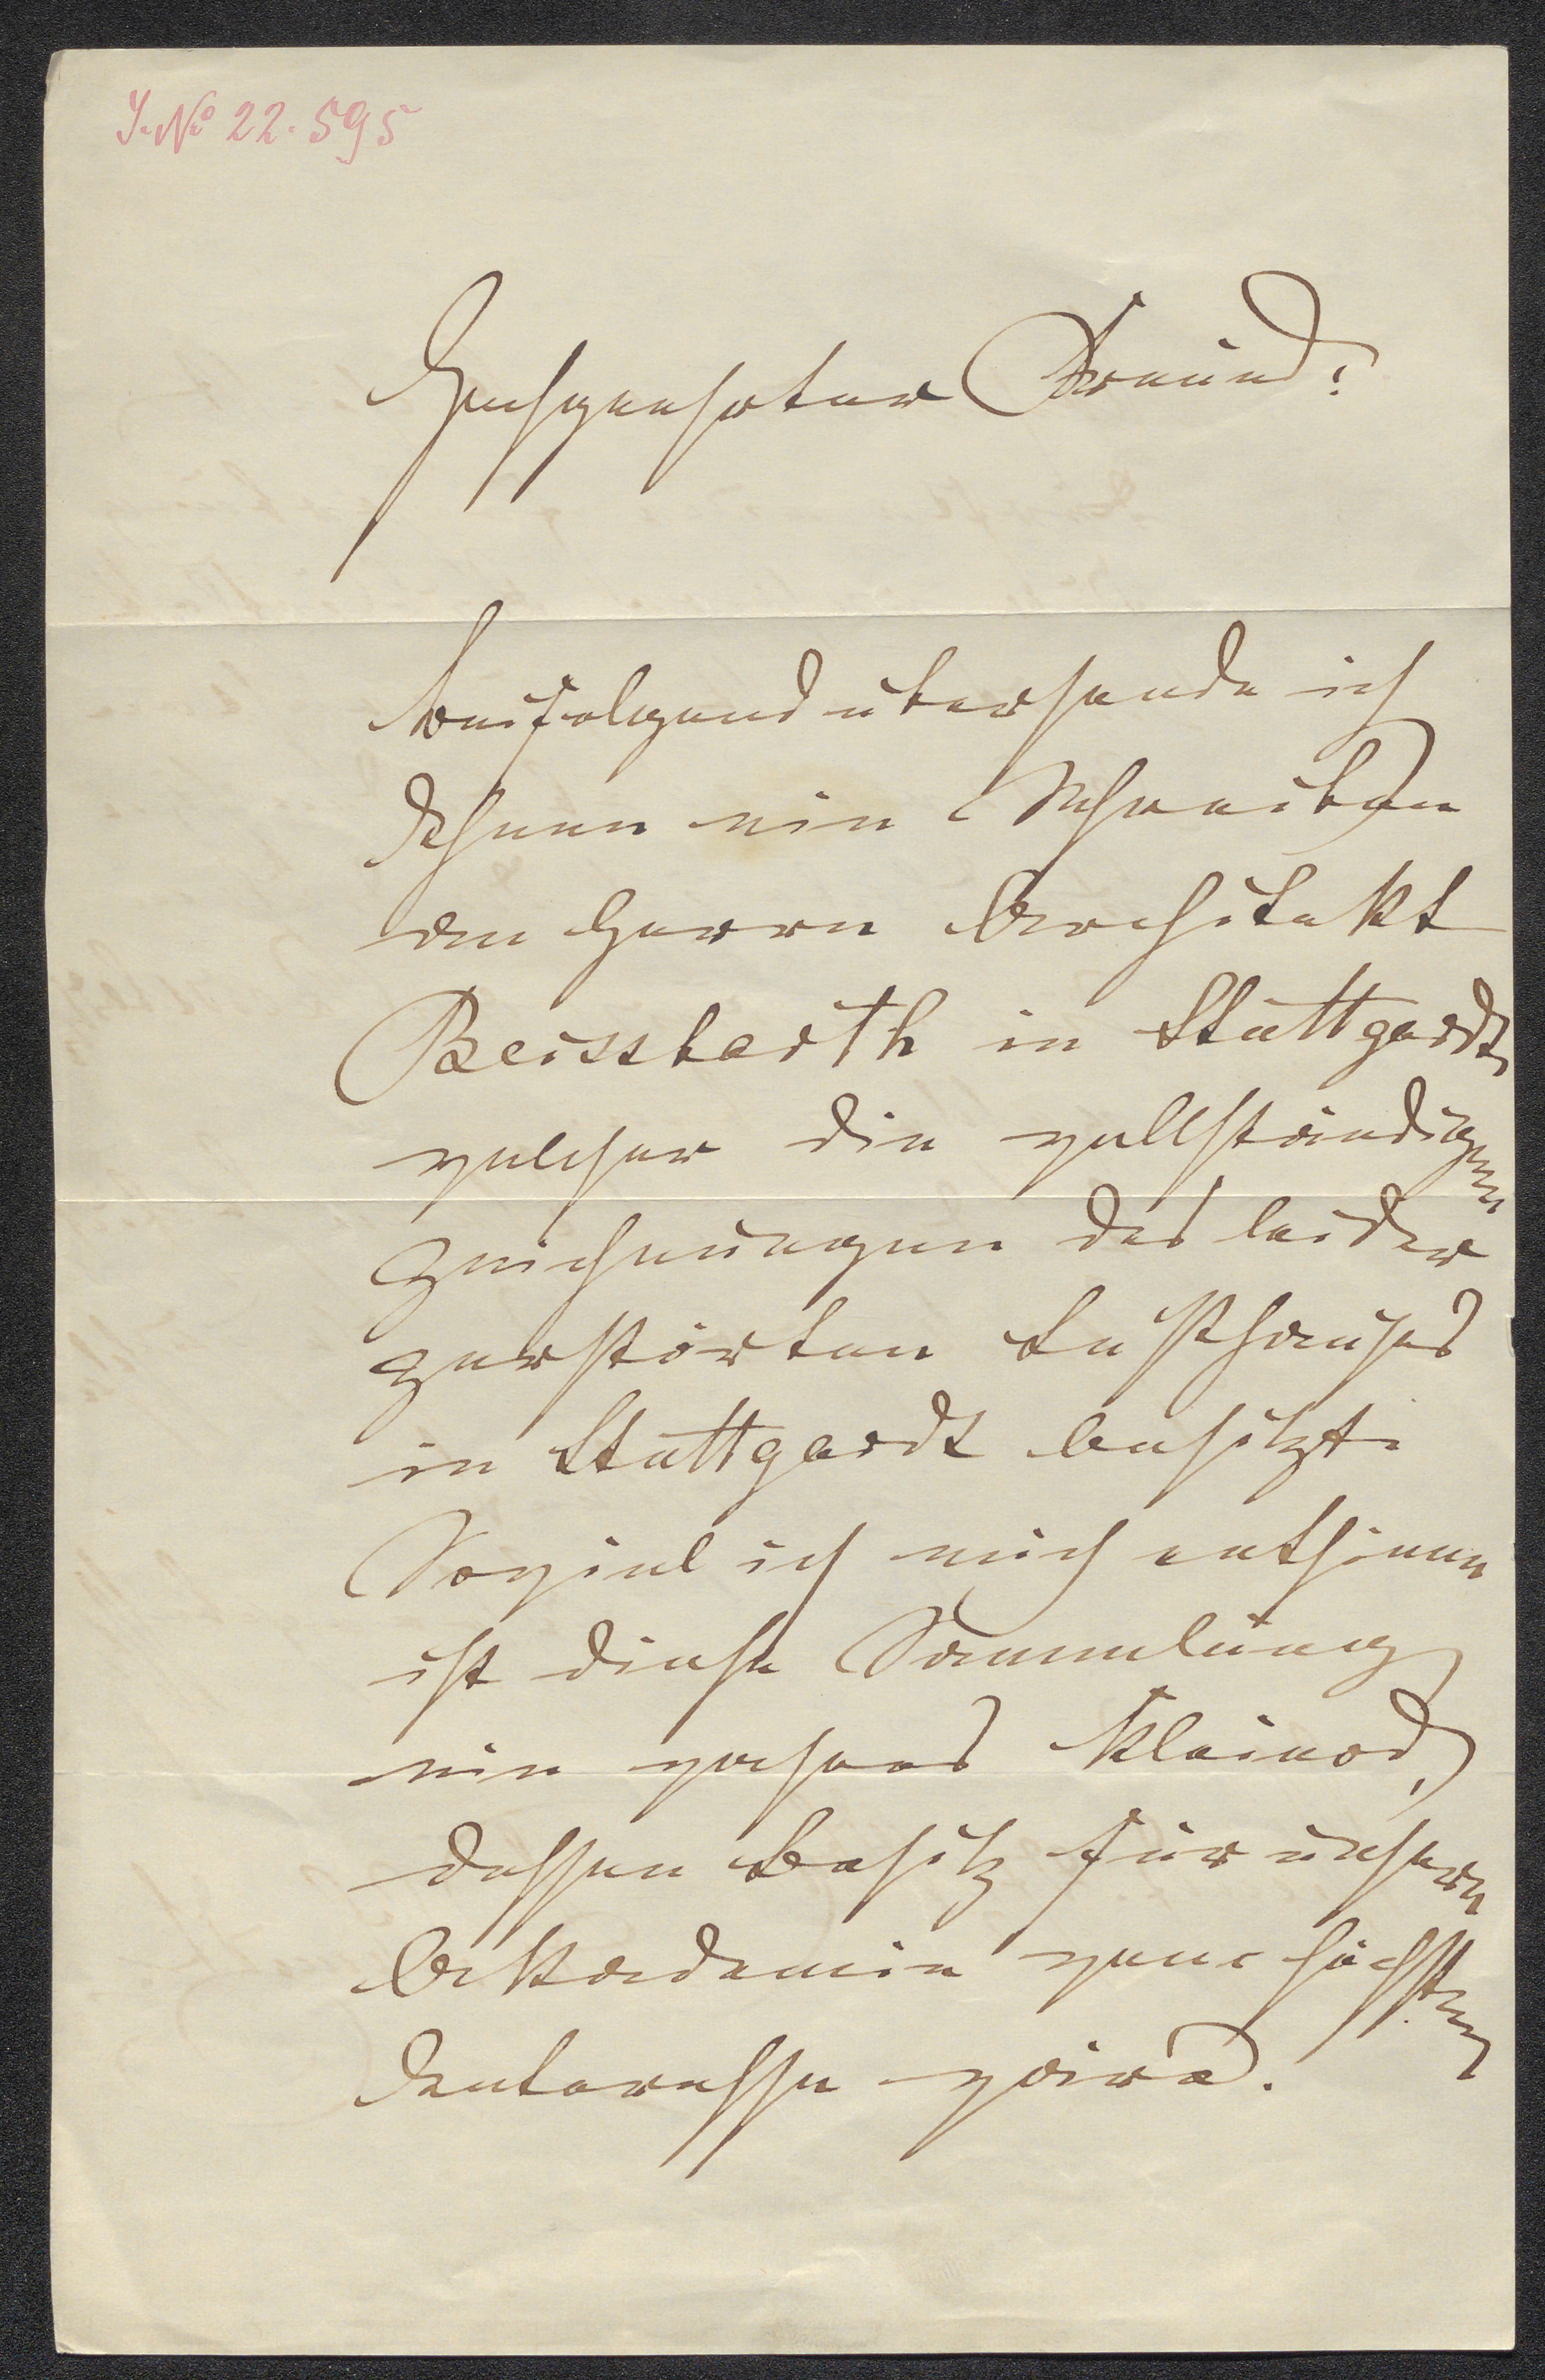 J. No 22.595
Hochgeehrter Freund!
beifolgend übersende ich
Ihnen ein Schreiben
an Herrn Architekt
Beissbarth in Stuttgardt,
welcher die vollständigen
Zeichnungen des leider
zerstörten Lusthauses
in Stuttgardt besitzt.
Soviel ich mich entsinne
ist diese Sammlung
ein wahres Kleinod,
dessen Besitz für unsere
Akademie von höchstem
Interesse wäre.